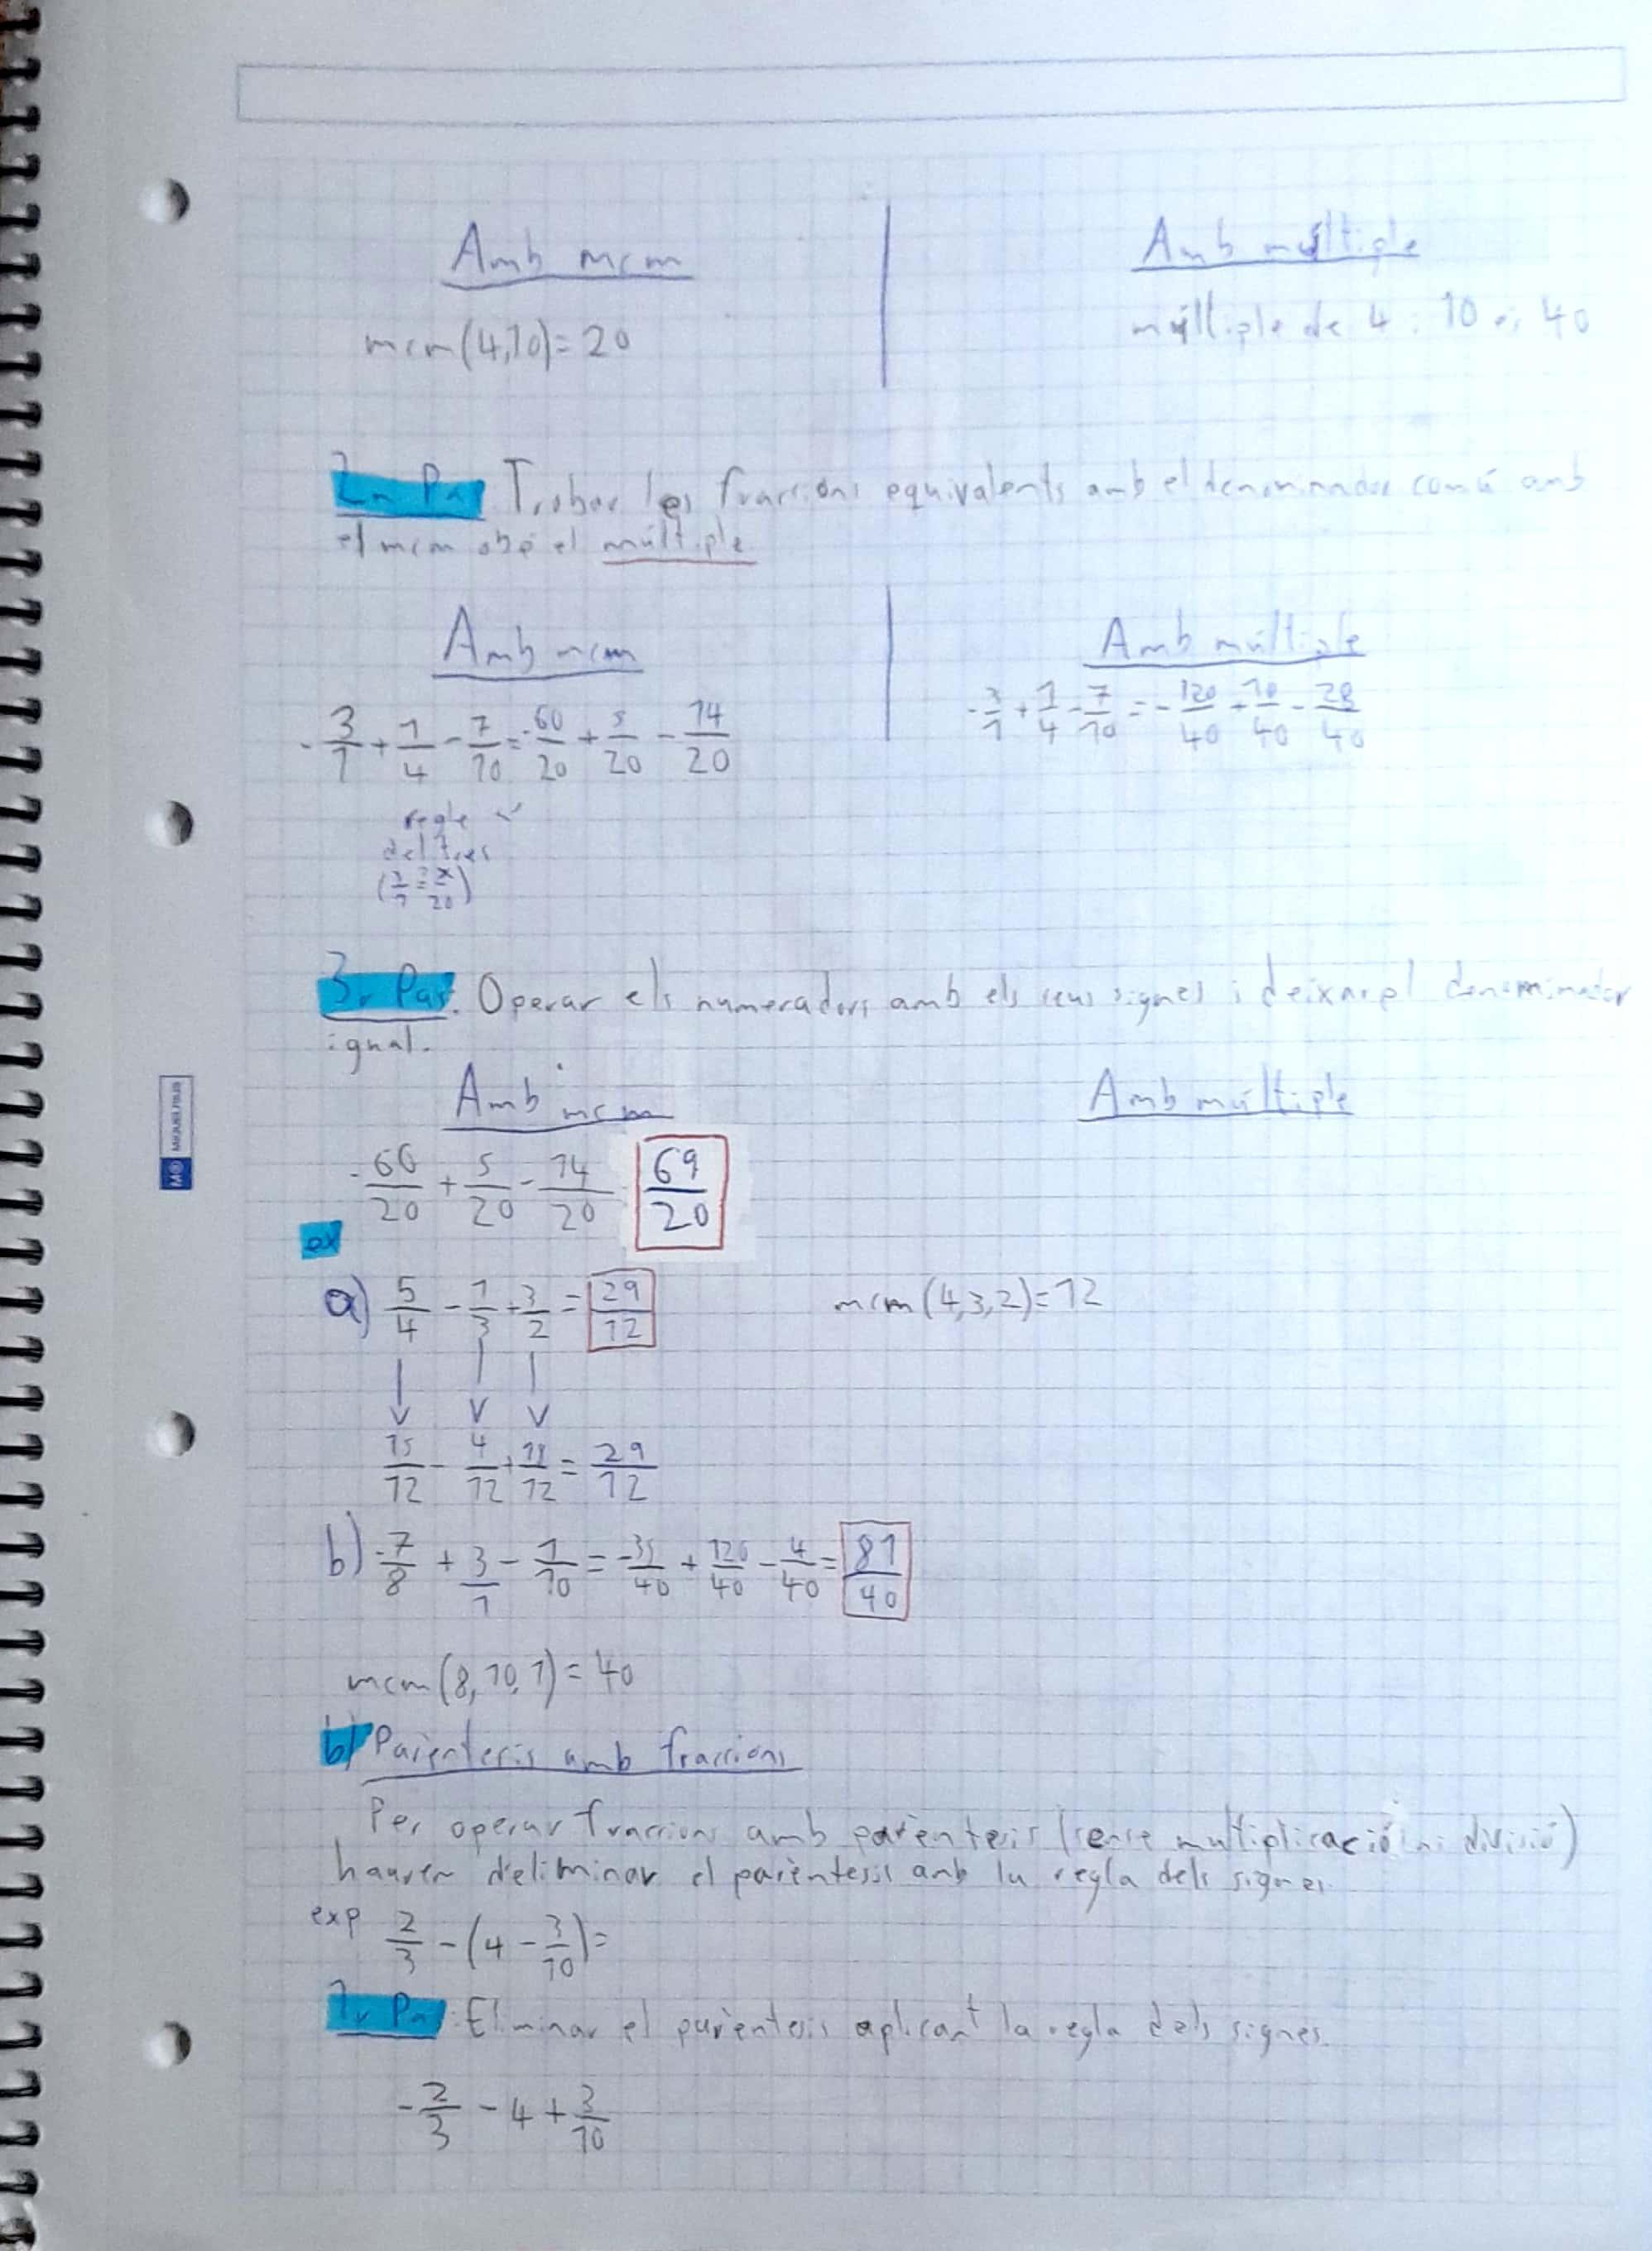 Amb mcm
Amb múltiple
mcm(4,10)=20
múltiple de 4 i 10 és 40
2n Pas Trobar les fraccions equivalents amb el denominador comú amb
el mcm obé el múltiple
Amb mcm
Amb múltiple
-3/1 + 1/4 - 7/10 = -60/20 + 5/20 - 14/20
-3/1 + 1/4 - 7/10 = -120/40 + 10/40 - 28/40
regle
del tres
(3/1 = x/20)
3r Pas. Operar els numeradors amb els seus signes i deixar el denominador
igual.
Amb mcm
Amb múltiple
-60/20 + 5/20 - 14/20 69/20
ex
a) 5/4 - 1/3 + 3/2 = 29/12
mcm(4,3,2)=12
15/12 - 4/12 + 18/12 = 29/12
b) -7/8 + 3/1 - 1/10 = -35/40 + 120/40 - 4/40 = 81/40
mcm(8,10,1)=40
b) Parèntesis amb fraccions
Per operar fraccions amb parèntesis (sense multiplicació ni divisió)
haurem d'eliminar el parèntesis amb la regla dels signes.
exp 2/3 - (4 - 3/10) =
1r Pas: Eliminar el parèntesis aplicant la regla dels signes.
-2/3 - 4 + 3/10
M® MIQUELRIUS